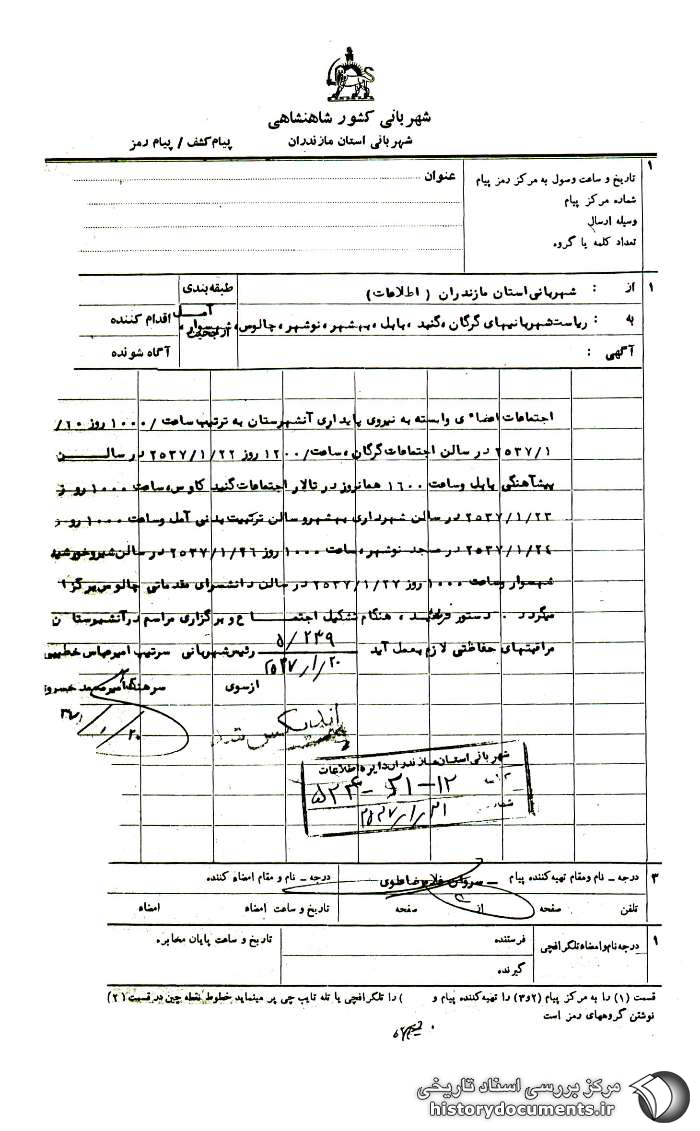 شهربانی کشور شاهنشاهی
شهربانی استان مازندران
پیام کشف / پیام رمز
۱
تاریخ و ساعت وصول به مرکز رمز پیام
شماره مرکز پیام
وسیله ارسال
تعداد کلمه یا گروه
عنوان
۱
از : شهربانی استان مازندران (اطلاعات)
طبقه‌بندی
به : ریاست شهربانیهای گرگان، گنبد، بابل، بهشهر، نوشهر، چالوس، شهسوار، آمل
اقدام کننده
آگهی :
آگاه شونده
اجتماعات اعضاء وابسته به نیروی پایداری آنشهرستان به ترتیب ساعت /۱۰۰۰ روز ۲۰/
۲۵۳۷/۱ در سالن اجتماعات گرگان، ساعت/۱۲۰۰ روز ۲۵۳۷/۱/۲۲ در سالن
پیشآهنگی بابل وساعت ۱۶۰۰ همانروز در تالار اجتماعات گنبد کاوس، ساعت ۱۰۰۰ روز
۲۵۳۷/۱/۲۳ در سالن شهرداری بهشهر و سالن تربیت بدنی آمل وساعت ۱۰۰۰ روز
۲۵۳۷/۱/۲۴ در مسجد نوشهر، ساعت ۱۰۰۰ روز ۲۵۳۷/۱/۲۶ در سالن شیروخورشید
شهسوار وساعت ۱۰۰۰ روز ۲۵۳۷/۱/۲۷ در سالن دانشسرای مقدماتی چالوس برگزا
میگردد . دستور فرمائید، هنگام تشکیل اجتماع و برگزاری مراسم در آنشهرستان
مراقبتهای حفاظتی لازم بعمل آید
۵/۲۳۹
۲۵۳۷/۱/۲۰
رئیس شهربانی سرتیپ امیرعباس خطیبی
ازسوی سرهنگ خسرو
۳۷/۱/۲۰
اندیکس شد
شهربانی استان مازندران دایره اطلاعات
۵۲۴-۲۱-۱۲
شماره
۲۵۳۷/۱/۲۱
۳
درجه – نام و مقام تهیه کننده پیام – سروان غلامرضا علوی
درجه – نام و مقام امضاء کننده
تلفن صفحه از صفحه
تاریخ و ساعت امضاء امضاء
۱
درجه نام و امضاء تلگرافچی
فرستنده
گیرنده
تاریخ و ساعت پایان مخابره
قسمت (۱) را به مرکز پیام (۲و۳) را تهیه کننده پیام و ( ) را تلگرافچی یا تله تایپ چی پر مینماید خطوط نقطه چین در قسمت (۲)
نوشتن گروههای رمز است
مرکز بررسی اسناد تاریخی
historydocuments.ir